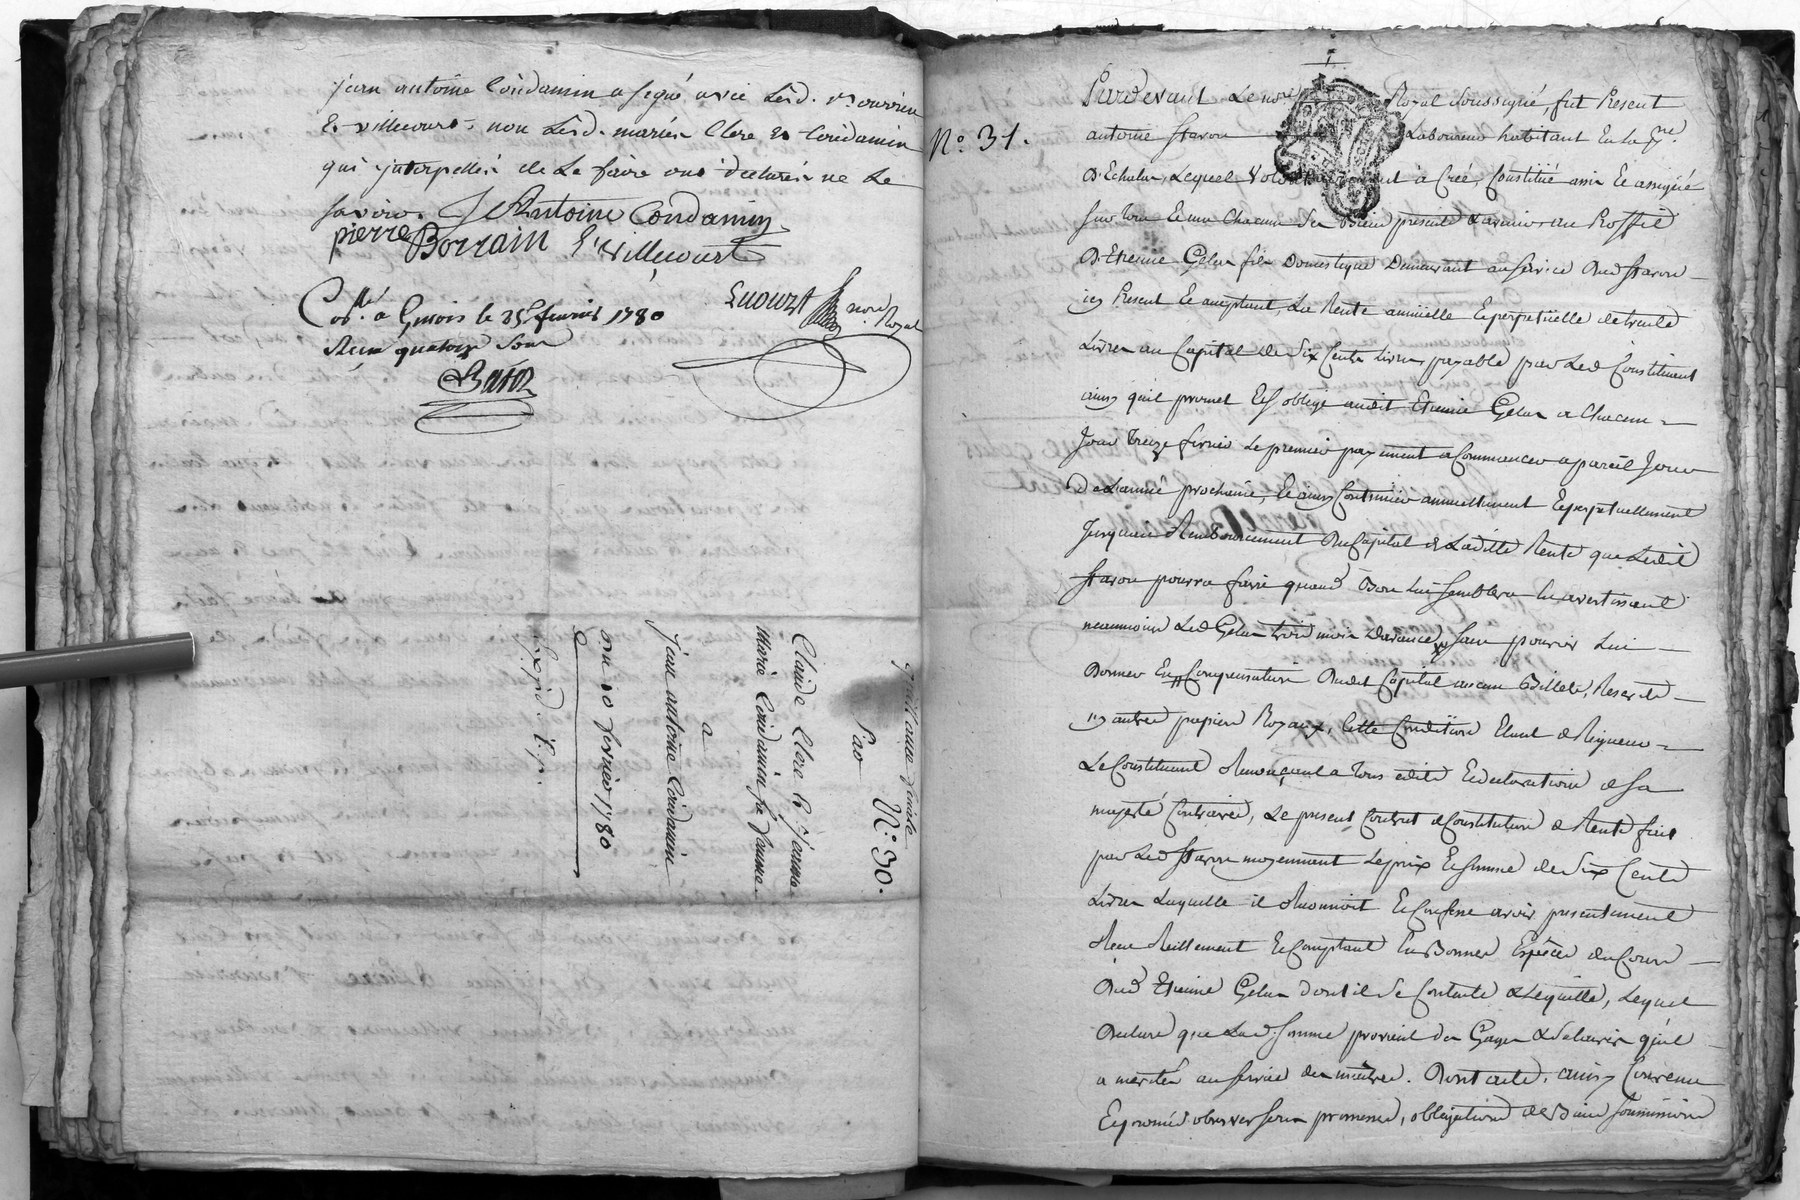 jean antoine Condamin a signé avec Lesd. srs ourrin
& villecourt, non Lesd. mariés Clere et Condamin
qui interpellés de Le faire ont déclarés ne Le
savoir. J Antoine Condamin
pierre Borrain villecourt
Cob.lé a le 25 fevrier 1780
Reçu quatorze sous
nore Royal
quittance finale
N.° 30.
Par
Claude Clere & Jeanne
marie Condamin sa femme
a
jean antoine Condamin
du 10 fevrier 1780
N.° 31.
Pardevant Le nore Royal soussigné, fut Present
antoine staron Laboureur habitant En La
D'Echalas, Lequel Volontairement à Créé, Constitué assis Et assigné
sur tous Et un Chacuns ses Biens present & avenir au Proffit
D'Etienne Gelas fils Domestique Demeurant au service Dud staron
icy Present Et acceptant, La Rente annuelle Et perpetuelle de trente
Livres au Capital de Six Cents Livres payable par Led Constituant
ainsy qu'il promet Et s'oblige audit Etienne Gelas a Chacun
Jour treize fevrier Le premier payement a Commencer a pareil Jour
De L'année prochaine, Et ainsy Continuer annuellement Et perpetuellement
Jusqu'au Remboursement Du Capital de Laditte Rente que Ledit
staron pourra faire quand Bon Lui semblera En avertissant
neanmoins Led Gelas trois mois D'avance, sans pouvoir Lui
Donner En Compensation Dudit Capital aucuns Billets, Rescrits
ny autres papiers Royaux, Cette Condition Etant de Rigueur
Le Constituant Renonçant a tous edits Et declarations de sa
majesté Contraires, Le present Contrat de Constitution de Rente fait
par Led staron moyennant Le prix Et somme de Six Cents
Livres Laquelle il Reconnoit Et Confesse avoir presentement
Reçue Reellement Et Comptant En Bonnes Espèces du Cours
Dud Etienne Gelas dont il se Contente & L'en quitte, Lequel
Declare que Lad. somme provient des Gages & salaires qu'il
a merités au service des maitres. Dont acte, ainsy Convenu
Et promis observer sous promesses, obligations de Biens soumissions